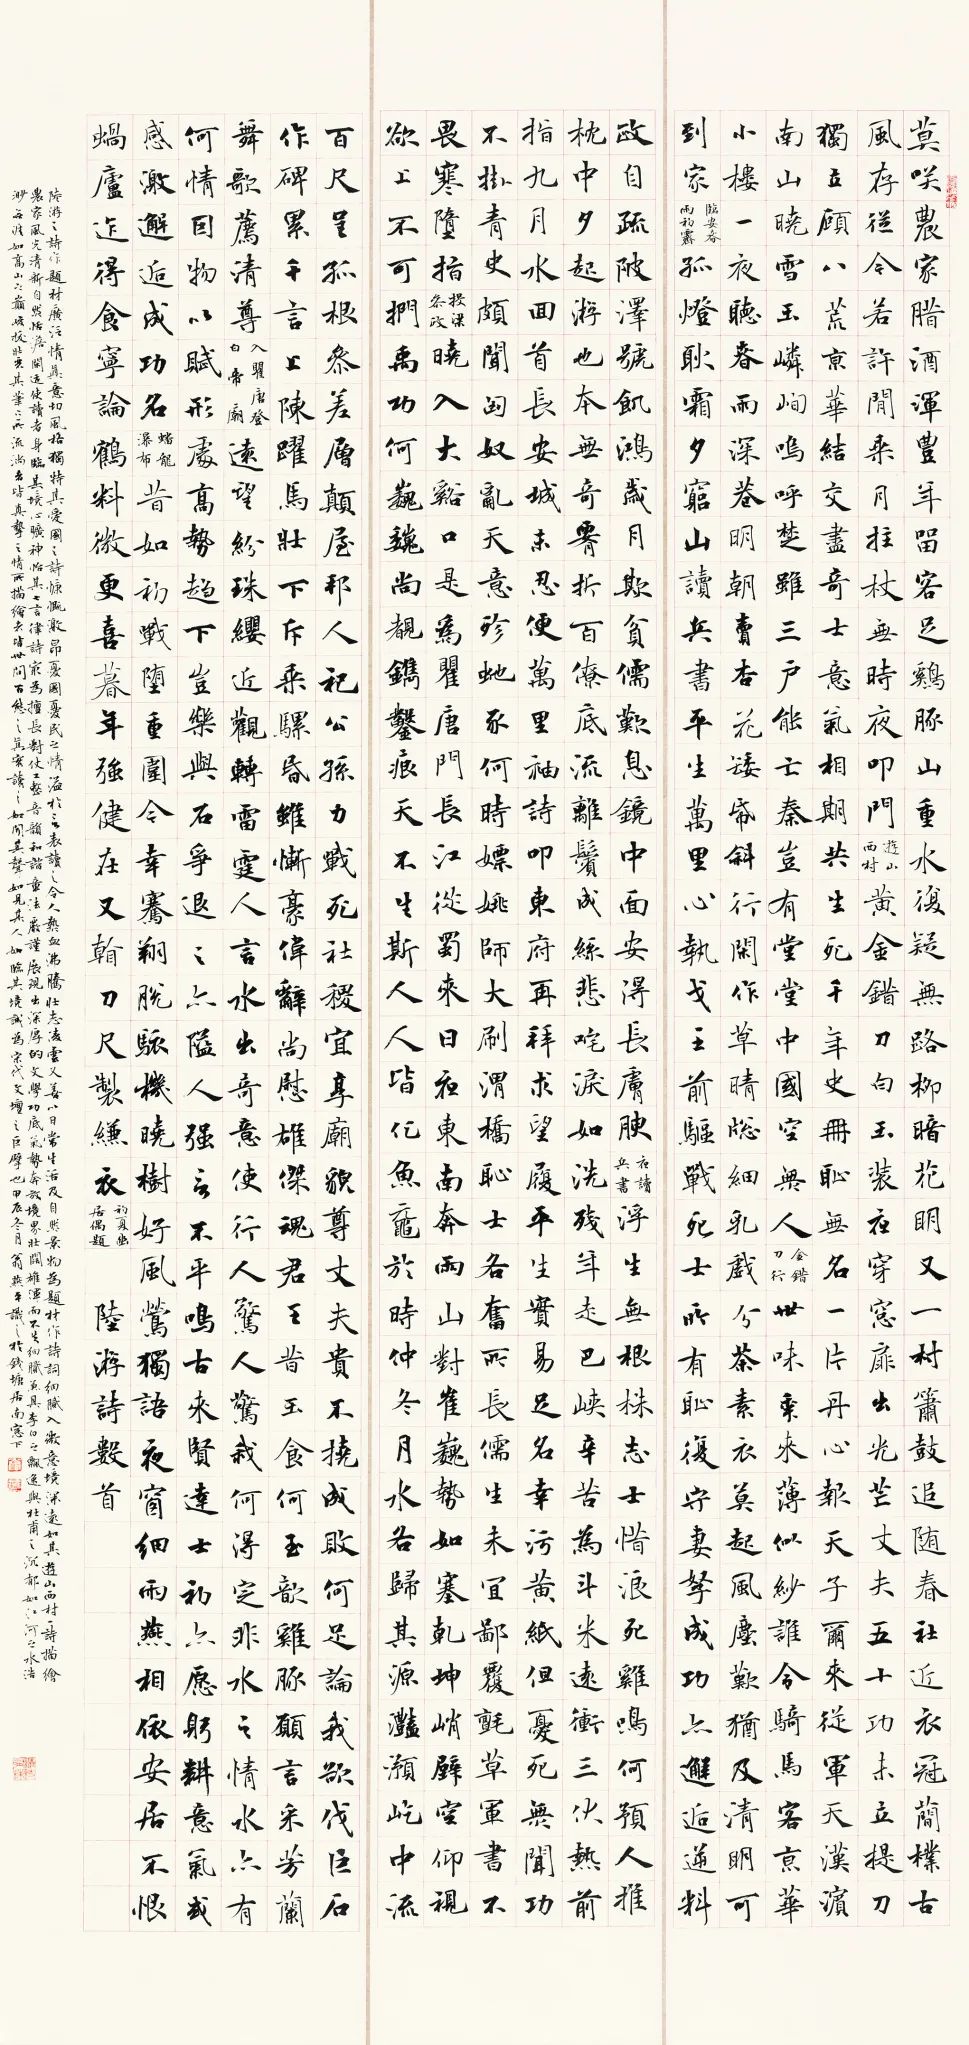 莫咲農家腊酒渾豐年留客足鷄豚山重水復疑無路柳暗花明又一村簫鼓追随春社近衣冠簡樸古
風存從今若許閒乘月拄杖無時夜叩門 遊山西村 黃金錯刀白玉裝夜穿窓扉出光芒丈夫五十功未立提刀
獨立顧八荒京華結交盡奇士意氣相期共生死千年史冊恥無名一片丹心報天子爾來從軍天漢濵
南山曉雪玉嶙峋嗚呼楚雖三戶能亡秦豈有堂堂中國空無人 金錯刀行 世味年來薄似紗誰令騎馬客京華
小樓一夜聽春雨深巷明朝賣杏花矮紙斜行閑作草晴窓細乳戲分茶素衣莫起風塵歎猶及清明可
到家 臨安春雨初霽 孤燈耿霜夕窮山讀兵書平生萬里心執戈王前驅戰死士所有恥復守妻孥成功亦邂逅逆料
政自疏陂澤號飢鴻歲月欺貧儒歎息鏡中面安得長膚腴 夜讀兵書 浮生無根株志士惜浪死雞鳴何預人推
枕中夕起游也本無奇臂折百僚底流離鬢成絲悲咤淚如洗殘年走巴峽辛苦為斗米遠衝三伏熱前
指九月水回首長安城未忍便萬里袖詩叩東府再拜求望履平生實易足名幸污黃紙但憂死無聞功
不掛青史頗聞匈奴亂天意殄虵豕何時嫖姚師大刷渭橋恥士各奮所長儒生未宜鄙覆氈草軍書不
畏寒墮指 投梁參政 曉入大谿口是為瞿唐門長江從蜀來日夜東南奔兩山對崔巍勢如塞乾坤峭壁空仰視
欲上不可捫禹功何巍巍尚覩鐫鑿痕天不生斯人人皆化魚黿於時仲冬月水各歸其源灔澦屹中流
百尺呈孤根參差層顛屋邦人祀公孫力戰死社稷宜享廟貌尊丈夫貴不撓成敗何足論我欲伐巨石
作碑累千言上陳躍馬壯下斥乘騾昏雖慚豪偉辭尚慰雄傑魂君王昔玉食何至歆雞豚願言采芳蘭
舞歌薦清尊 入瞿唐登白帝廟 遠望紛珠纓近觀轉雷霆人言水出奇意使行人驚人驚我何得定非水之情水亦有
何情因物以賦形處高勢趨下豈樂與石爭退之亦隘人强言不平鳴古來賢達士初亦愿躬耕意氣或
感激邂逅成功名 蟠龍瀑布 昔如初戰墮重圍今幸騫翔脫駭機曉樹好風鶯獨語夜窗細雨燕相依安居不恨
蝸廬迮得食寧論鶴料微更喜暮年強健在又翰刀尺製縑衣 初夏幽居偶題 陸游詩數首
陸游之詩作題材廣泛情真意切風格獨特其愛國之詩慷慨激昂憂國憂民之情溢於言表讀之令人熱血沸騰壯志凌雲又善以日常生活及自然景物為題材作詩詞細膩入微意境深遠如其遊山西村一詩描繪
農家風光清新自然恬淡閒適使讀者身臨其境心曠神怡其七言律詩最為擅長對仗工整音韻和諧章法嚴謹展現出深厚的文學功底氣勢奔放境界壯闊雄渾而不失細膩兼具李白之飄逸與杜甫之沉郁如江河之水浩
渺無涯如高山之巔峻拔壯美其筆下所流淌者皆真摯之情所描繪者皆世間百態之真實讀之如聞其聲如見其人如臨其境誠為宋代文壇之巨擘也甲辰冬月翁燕平識之於錢塘居南窓下